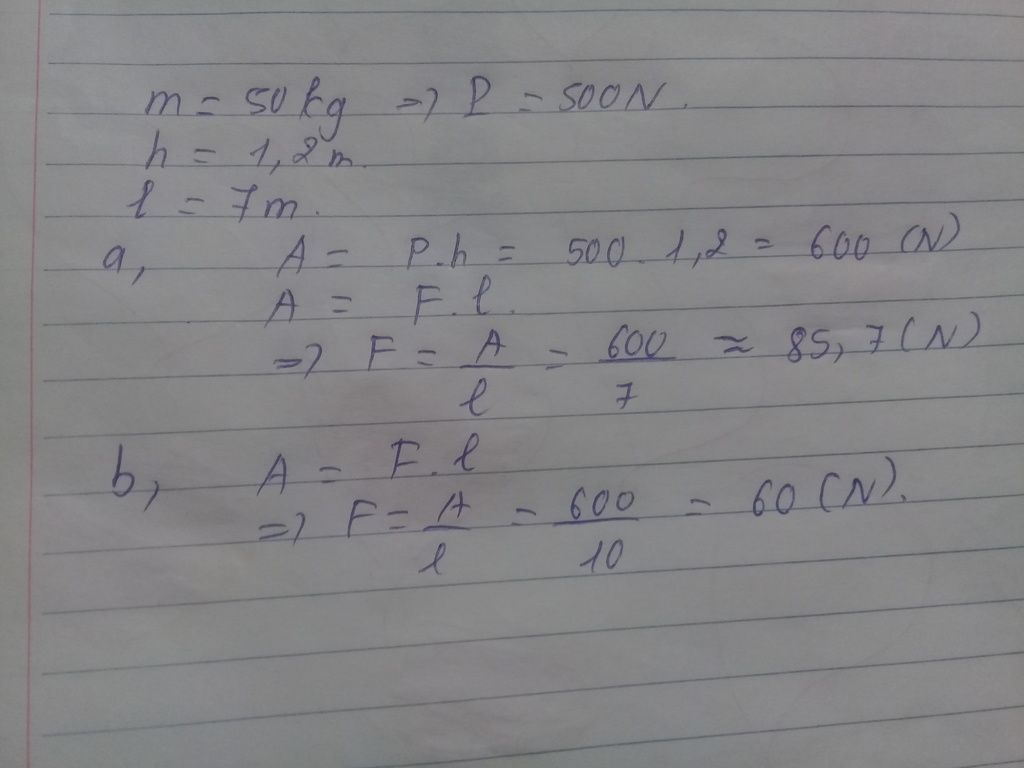 m = 50 kg => P = 500N.
h = 1,2 m.
l = 7m.
a, A = P.h = 500. 1,2 = 600 (N)
A = F.l.
=> F = A/l = 600/7 ≈ 85,7 (N)
b, A = F.l
=> F = A/l = 600/10 = 60 (N).